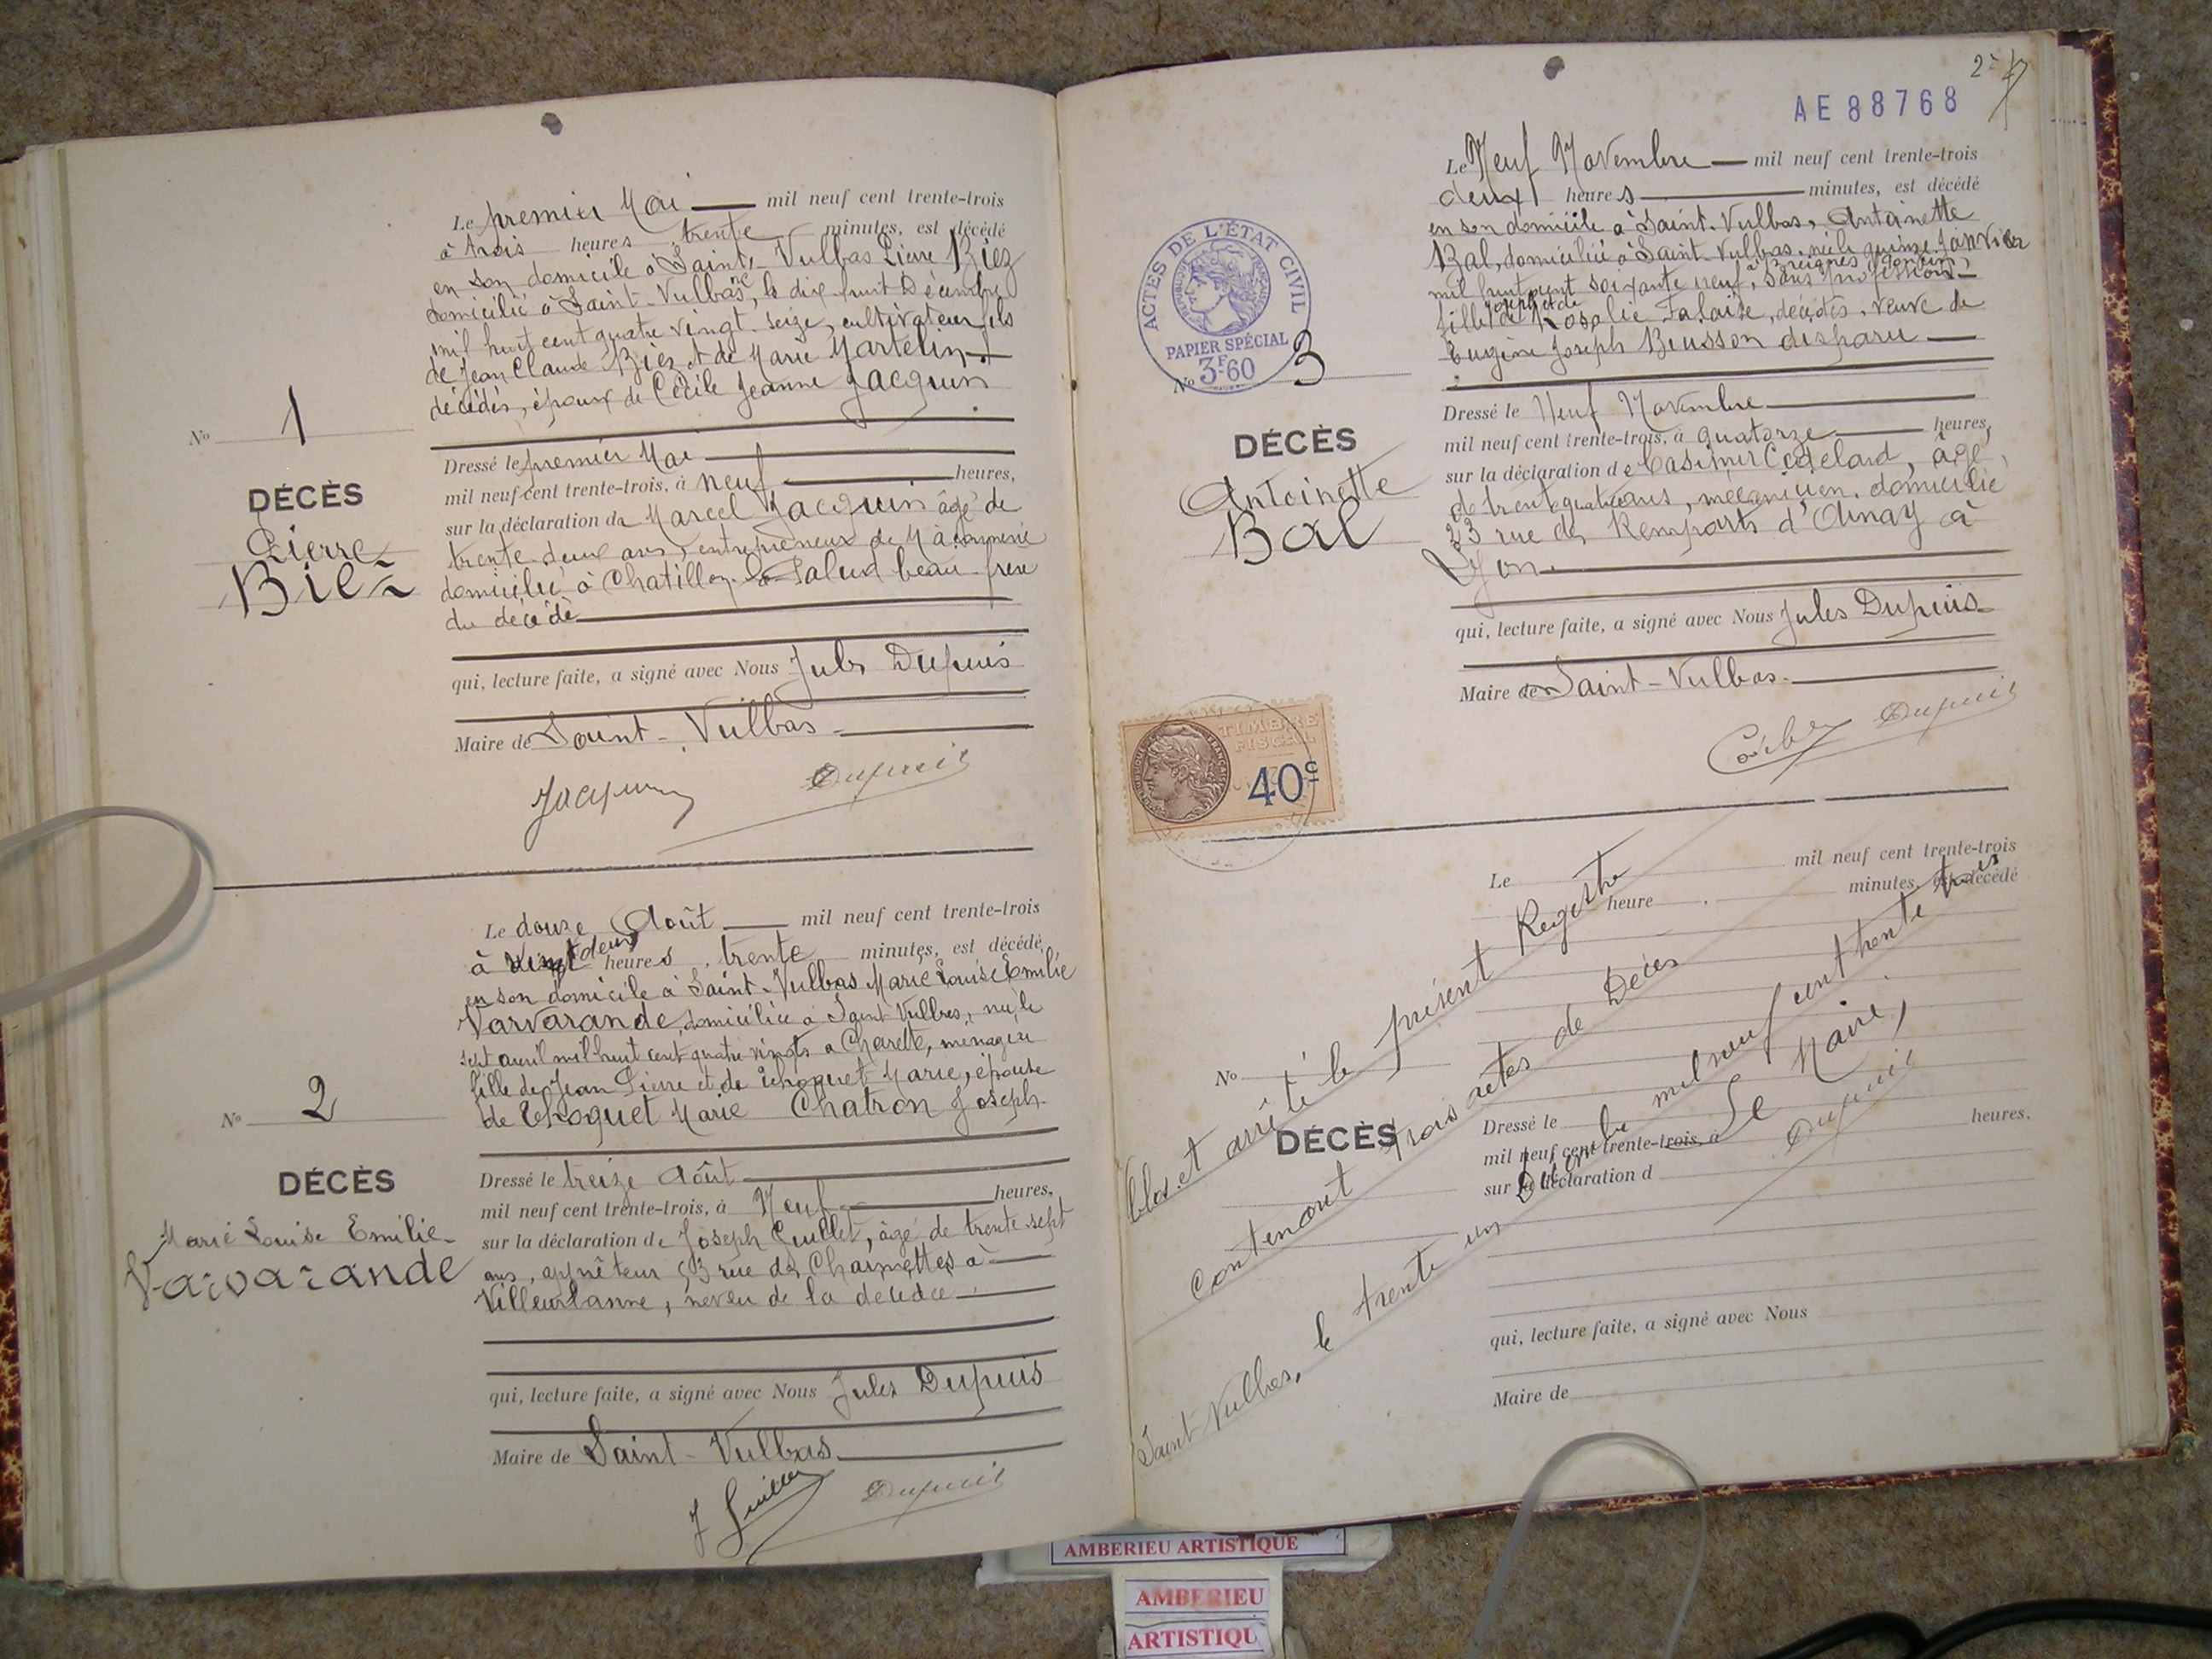 Le premier Mai mil neuf cent trente-trois
à trois heures trente minutes, est décédé
en son domicile à Saint-Vulbas Pierre Biez
domicilié à Saint-Vulbas, né le dix huit Décembre
mil huit cent quatre vingt-seize, cultivateur, fils
de Jean Claude Biez et de Marie Martelin
décédés, époux de Cécile Jeanne Jacquin
No 1
DÉCÈS
Pierre
Biez
Dressé le premier Mai
mil neuf cent trente-trois, à neuf heures,
sur la déclaration de Marcel Jacquin âgé de
trente-deux ans, entrepreneur de Maçonnerie
domicilié à Chatillon la Palud beau-frère
du décédé
qui, lecture faite, a signé avec Nous Jules Dupuis
Maire de Saint-Vulbas
Jacquin Dupuis
Le douze Août mil neuf cent trente-trois
à vingt deux heures trente minutes, est décédé
en son domicile à Saint-Vulbas Marie Louise Emilie
Varvarande, domiciliée à Saint Vulbas, née le
sept avril mil huit cent quatre vingts a Charette, ménagère
fille de Jean Pierre et de Choquet Marie, épouse
de Choquet Marie Chatron Joseph.
No 2
DÉCÈS
Marie Louise Emilie
Varvarande
Dressé le treize Août
mil neuf cent trente-trois, à Neuf heures,
sur la déclaration de Joseph Guillet, âgé de trente-sept
ans, apprêteur 53 rue des Charmettes à
Villeurbanne, neveu de la décédée
qui, lecture faite, a signé avec Nous Jules Dupuis
Maire de Saint-Vulbas
J Guillet Dupuis
AE 88768
Le Neuf Novembre mil neuf cent trente-trois
deux heures minutes, est décédé
en son domicile à Saint-Vulbas, Antoinette
Bal, domiciliée à Saint-Vulbas, née le quinze Janvier
mil huit cent soixante neuf, sans profession
fille de Joseph et de Rosalie Falaise, décédés, veuve de
Eugène Joseph Busson disparu
ACTES DE L'ÉTAT CIVIL
RÉPUBLIQUE FRANÇAISE
PAPIER SPÉCIAL
3F60
No 3
DÉCÈS
Antoinette
Bal
Dressé le Neuf Novembre
mil neuf cent trente-trois, à quatorze heures,
sur la déclaration de Casimir âgé
de trente quatre ans, mécanicien, domicilié
23 rue des Remparts d'Ainay à
Lyon
qui, lecture faite, a signé avec Nous Jules Dupuis
Maire de Saint-Vulbas
Dupuis
TIMBRE
FISCAL
40c
Le mil neuf cent trente-trois
heure minutes, est décédé
No
DÉCÈS
Dressé le
mil neuf cent trente-trois, à heures.
sur la déclaration d
qui, lecture faite, a signé avec Nous
Maire de
Clos et arrêté le présent Registre
contenant trois actes de Décès
Saint-Vulbas, le trente un Décembre mil neuf cent trente trois
Le Maire,
Dupuis
AMBERIEU ARTISTIQUE
AMBERIEU
ARTISTIQU